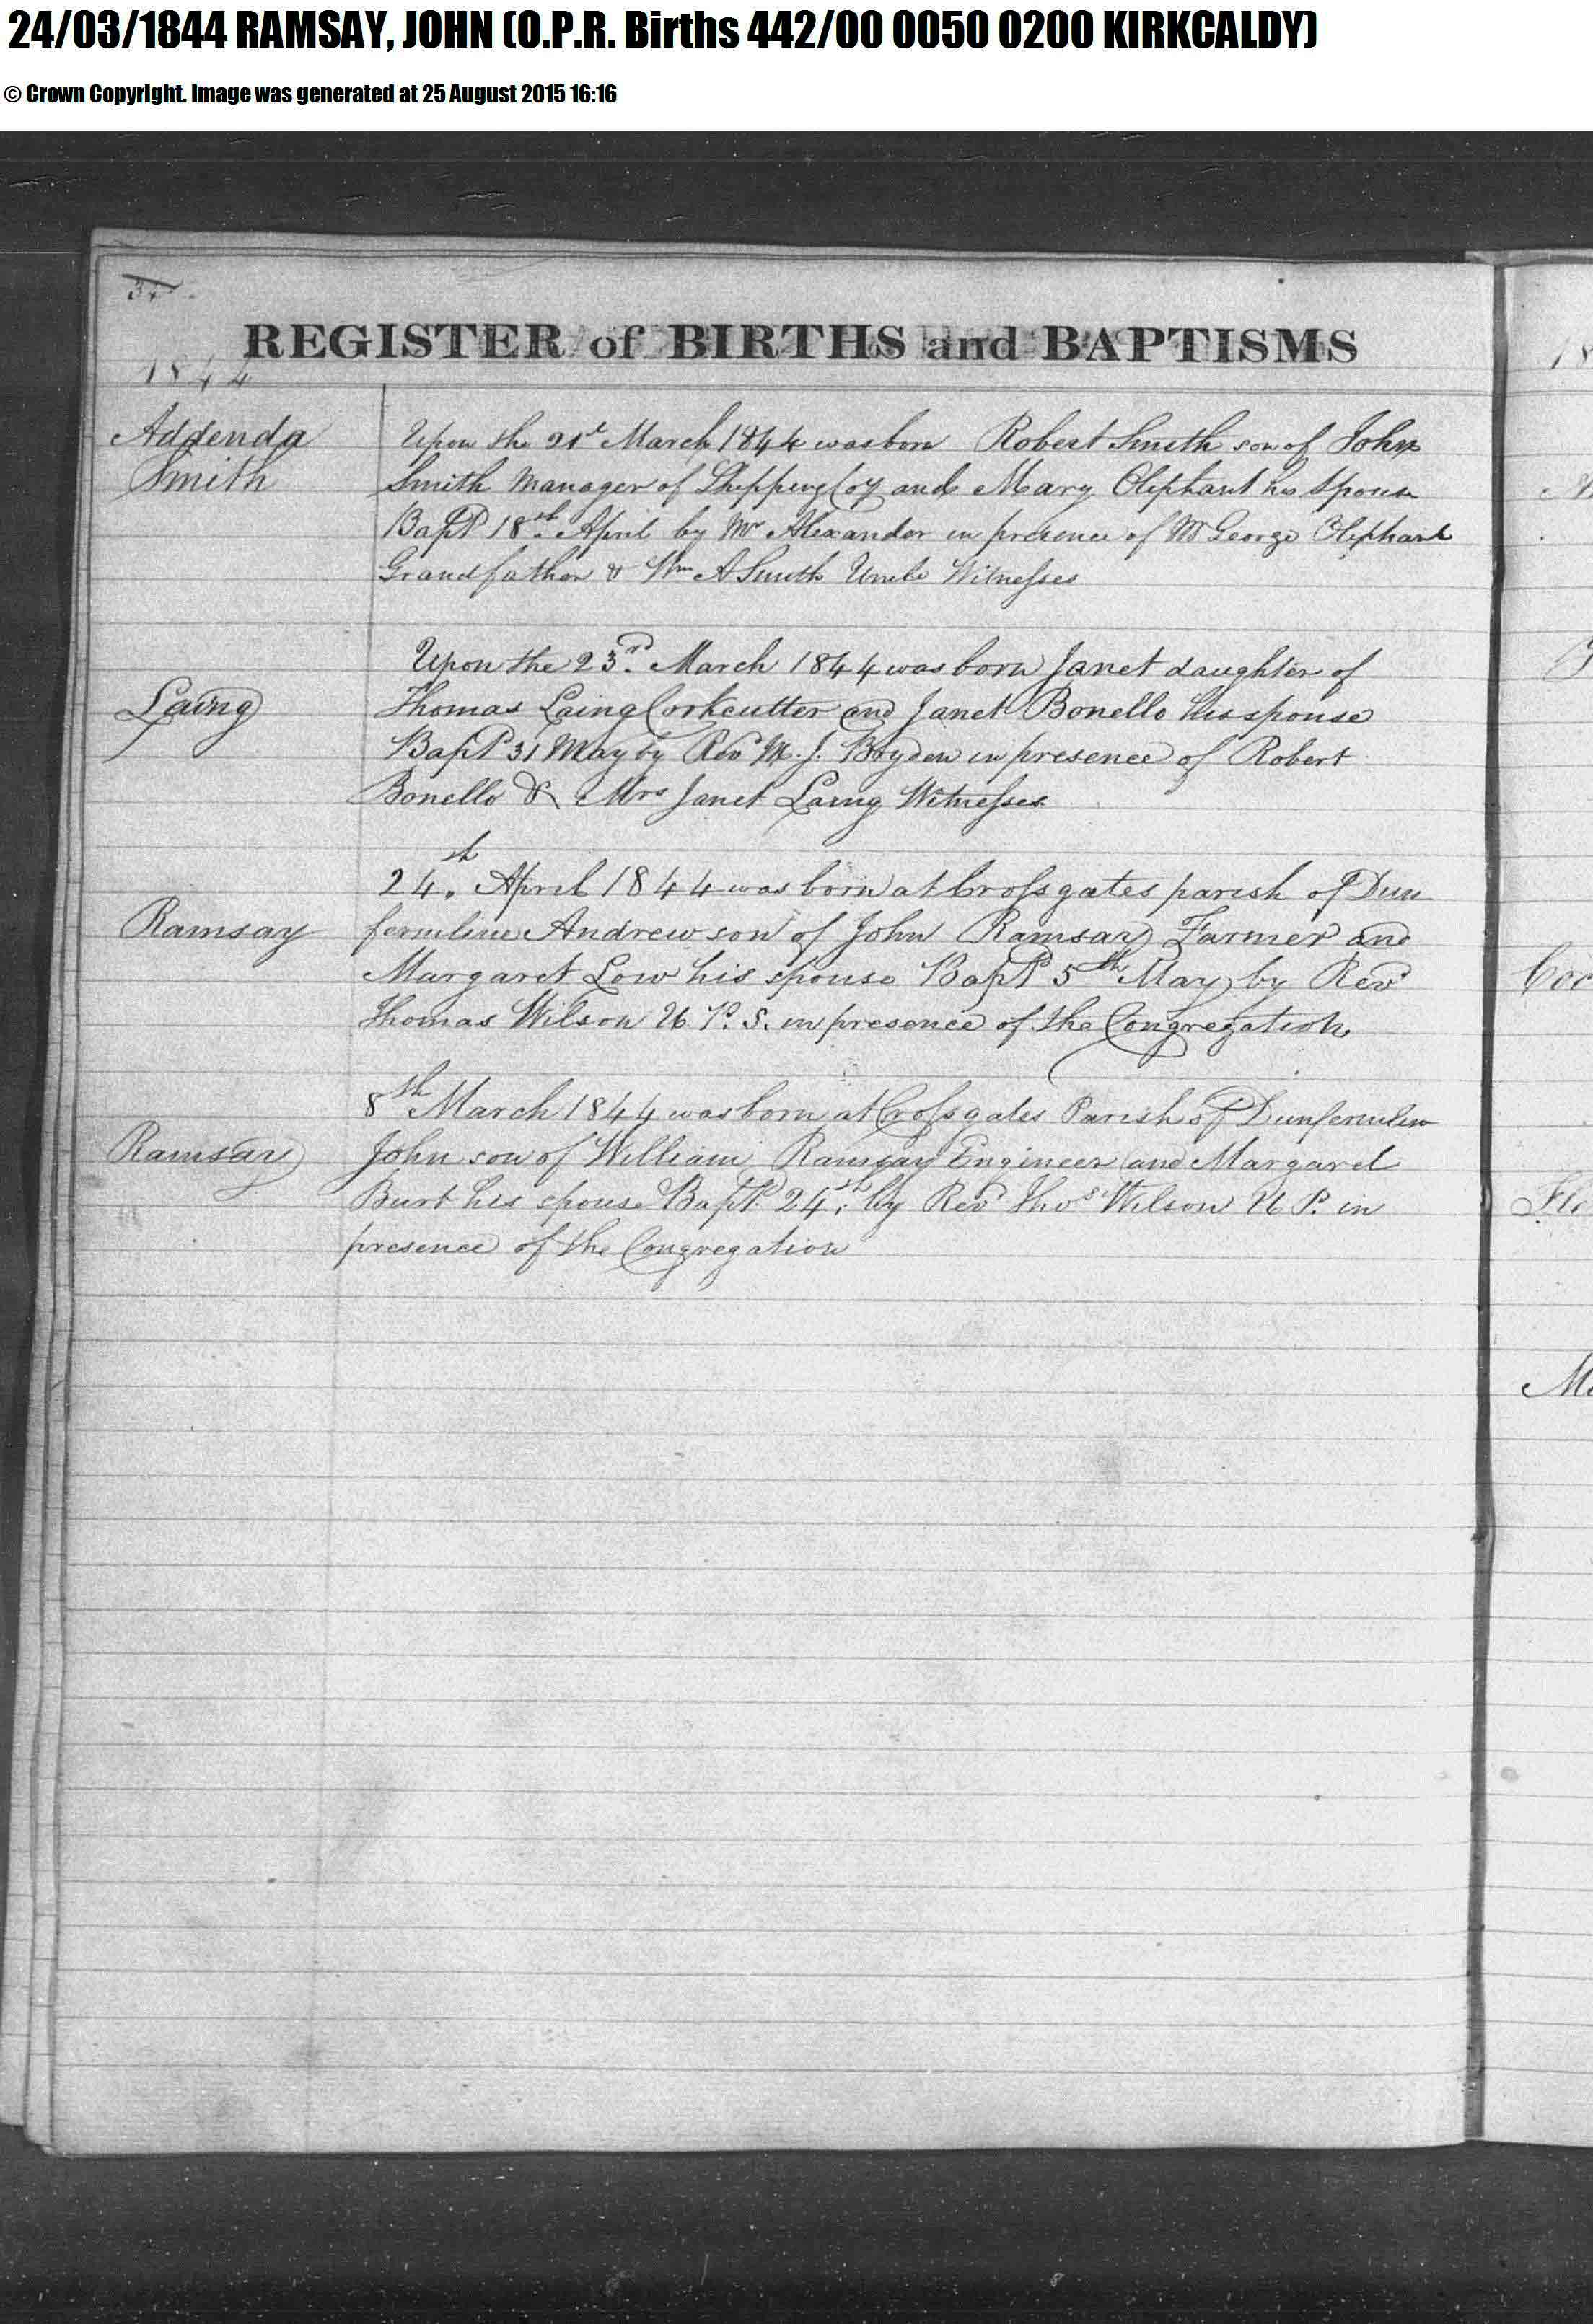 24/03/1844 RAMSAY, JOHN (O.P.R. Births 442/00 0050 0200 KIRKCALDY)
© Crown Copyright. Image was generated at 25 August 2015 16:16
REGISTER of BIRTHS and BAPTISMS
1844
Addenda
Smith
Upon the 21st March 1844 was born Robert Smith son of John
Smith Manager of Shipping Coy and Mary Oliphant his spouse
Bapt 18th April by Mr Alexander in presence of Mr George Oliphant
Grandfather & Wm A Smith Uncle Witnesses
Laing
Upon the 23rd March 1844 was born Janet daughter of
Thomas Laing Corkcutter and Janet Bonello his spouse
Bapt 31 May by Revd M. J. in presence of Robert
Bonello & Mrs Janet Laing Witnesses
Ramsay
24th April 1844 was born at Crossgates parish of Dun
fermline Andrew son of John Ramsay Farmer and
Margaret Low his spouse Bapd 5th May by Revd
Thomas Wilson U. P. S. in presence of the Congregation
Ramsay
8th March 1844 was born at Crossgates Parish of Dunfermline
John son of William Ramsay Engineer and Margaret
Burt his spouse Bapd. 24th by Revd Thos Wilson U P. in
presence of the Congregation